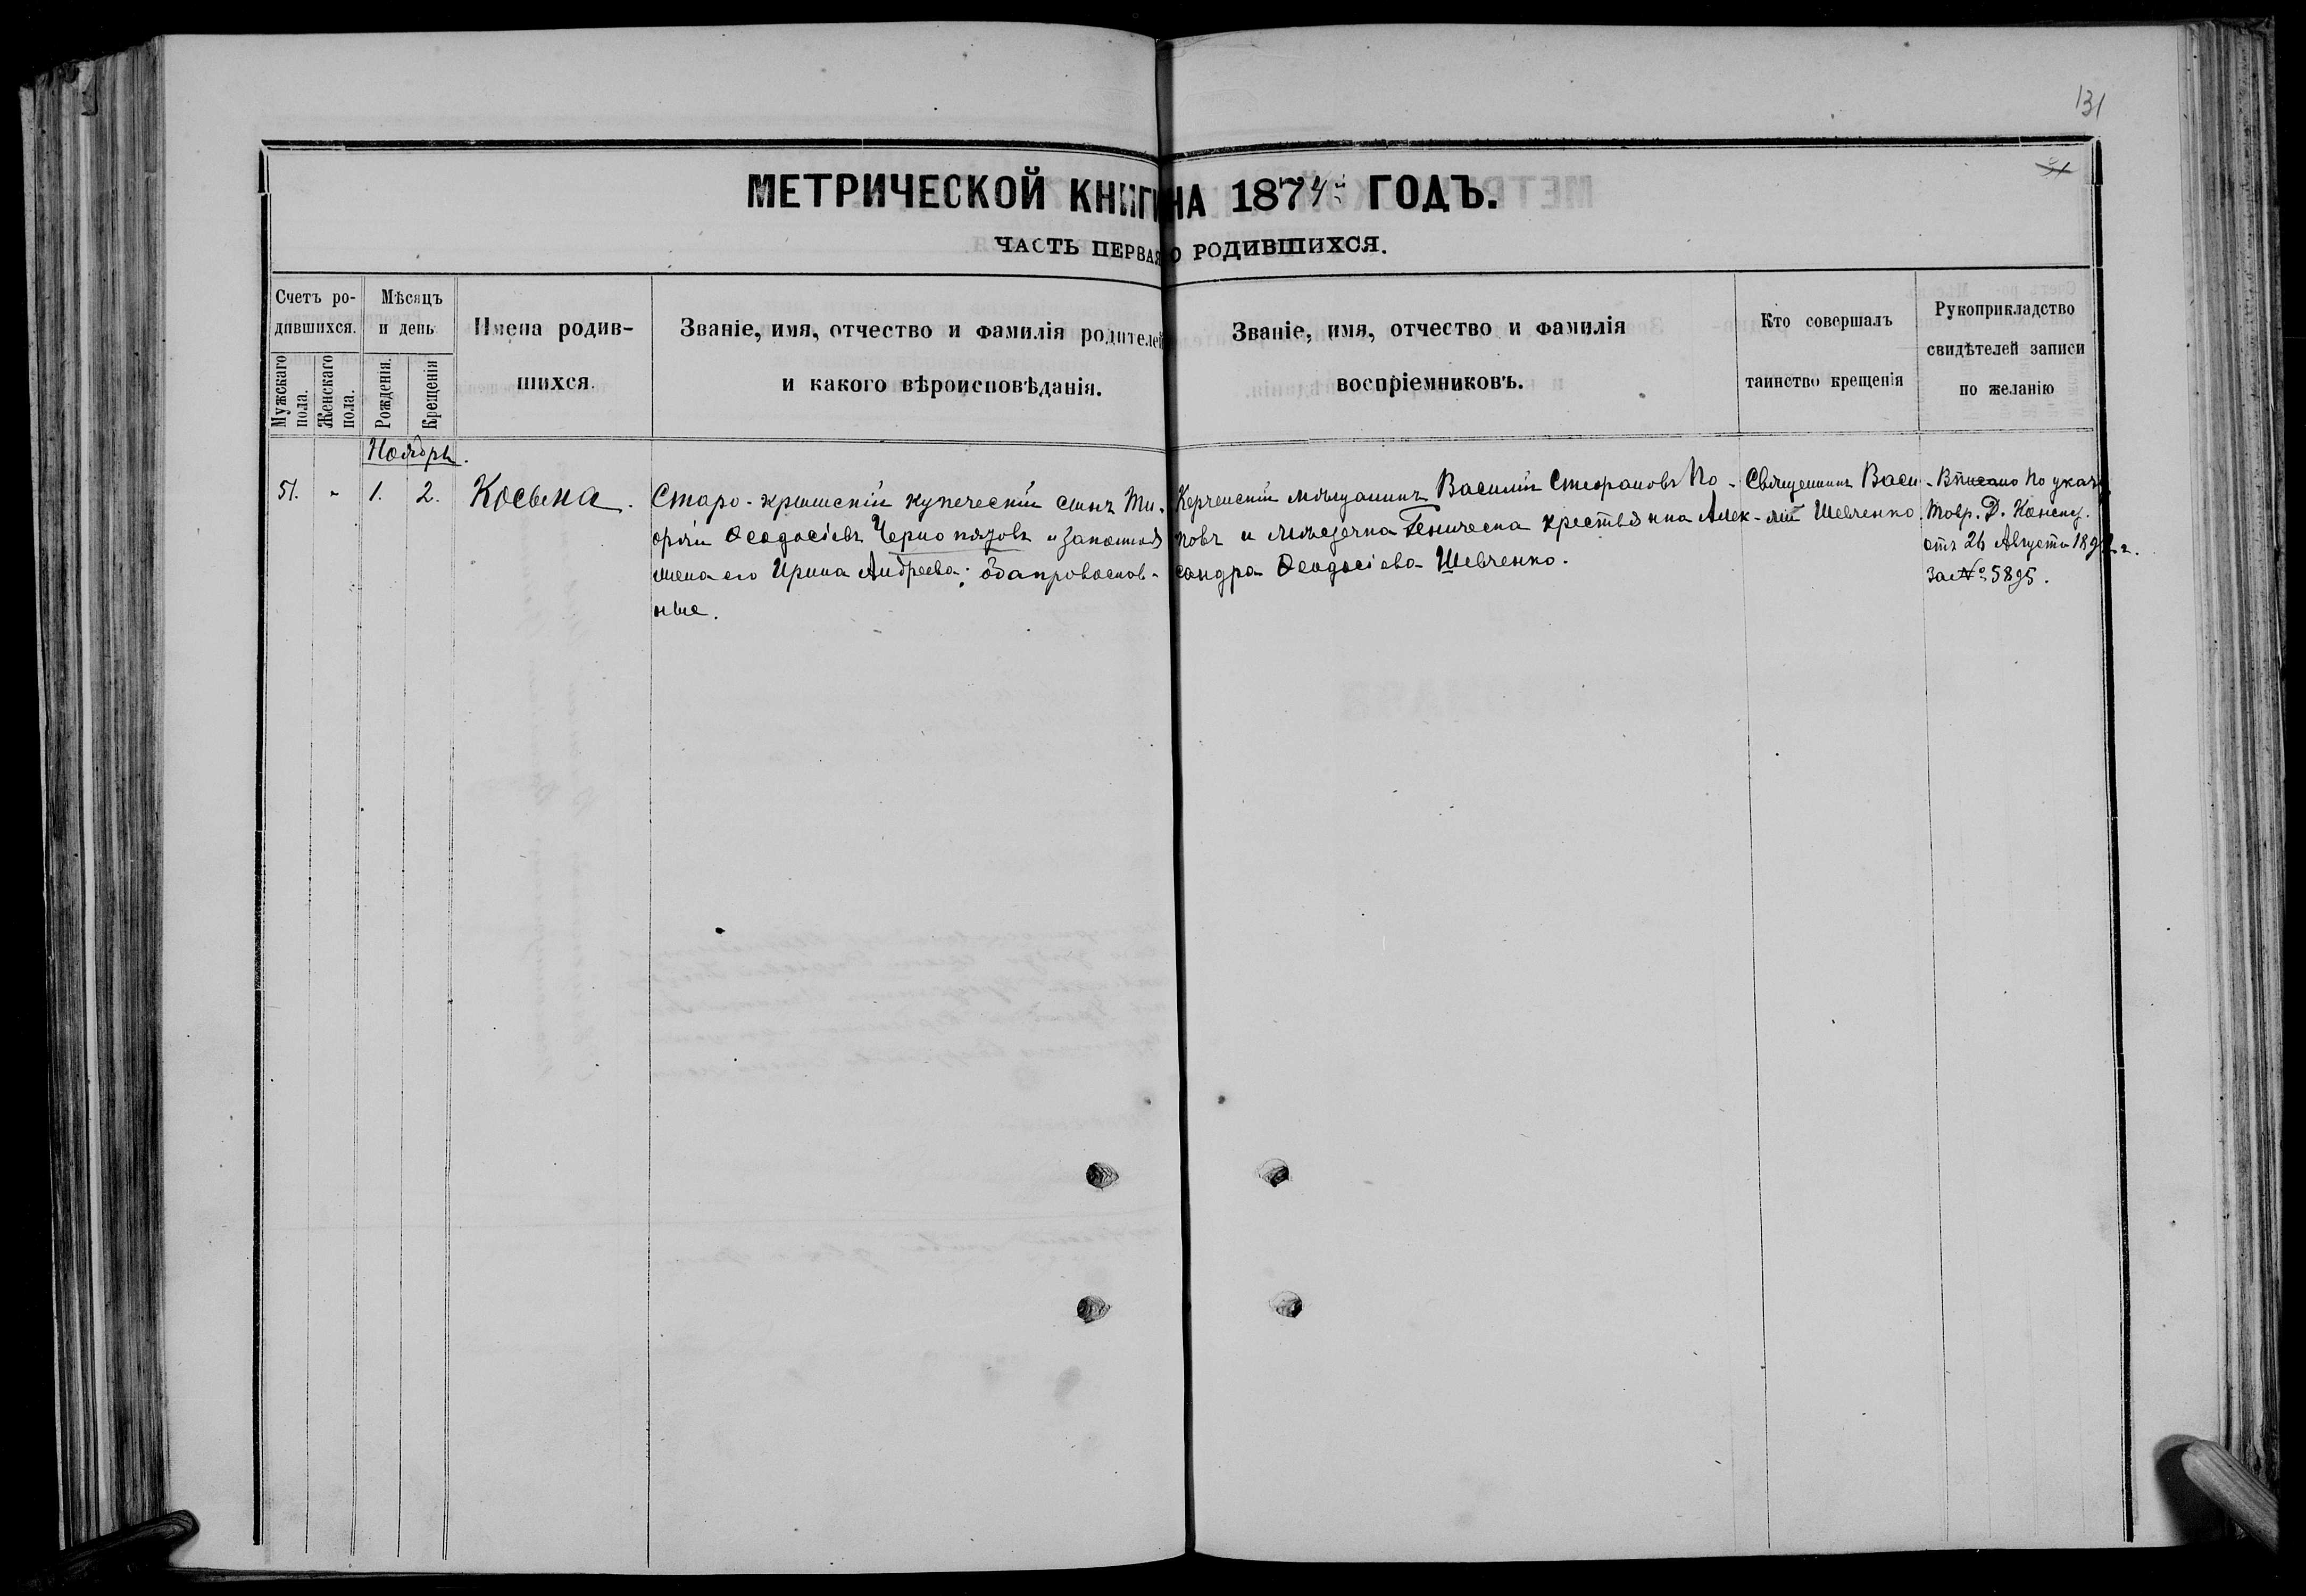 131
МЕТРИЧЕСКОЙ КНИГИ НА 1874й ГОДЪ.
ЧАСТЬ ПЕРВАЯ О РОДИВШИХСЯ.
Счетъ ро-
дившихся.
Мужскаго пола.
Женскаго пола.
Мѣсяцъ
и день
Рожденія.
Крещенія
Имена родив-
шихся.
Званіе, имя, отчество и фамилія родителей
и какого вѣроисповѣданія.
Званіе, имя, отчество и фамилія
воспріемниковъ.
Кто совершалъ
таинство крещенія
Рукоприкладство
свидѣтелей записи
по желанію
Ноябрь.
51. " 1. 2. Косьма.
Старо-крымскій купеческій сынъ Ти-
ѳеодосіевъ и законная
жена его Ирина Андреева; оба православ-
ные.
Керченскій мѣщанинъ Василій Стефановъ По-
повъ и мѣстечка Геническа крестьянка Алек-
сандра Ѳеодосіева Шевченко.
Священникъ Васи-
лій Шевченко.
Вписано по указу
Тавр. Д. Консис.
отъ 26 Августа
За № 5895.